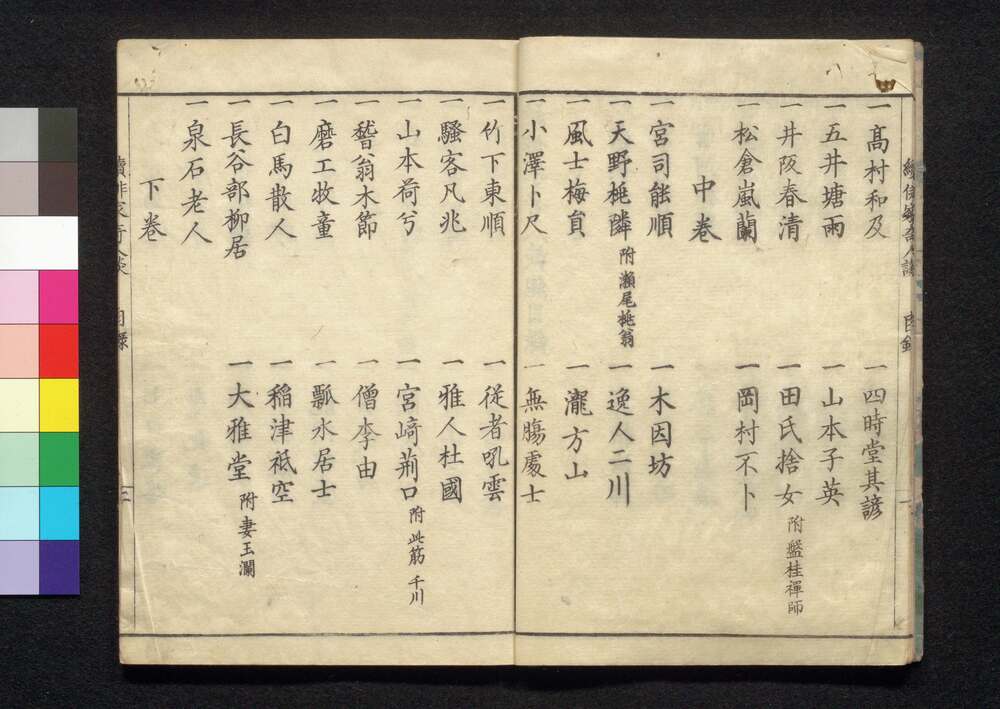 一高村和及 一四時堂其諺
一五井塘雨 一山本子英
一井阪春清 一田氏捨女附盤桂禅師
一松倉嵐蘭 一岡村不卜
中巻
一宮司能順 一木因坊
一天野桃隣附瀬尾桃翁 一逸人二川
一風士梅貟 一瀧方山
一小澤卜尺 一無膓処士
一竹下東順 一従者吼雲
一騷客凡兆 一雅人杜國
一山本荷兮 一宮﨑荊口附此筋千川
一嵆翁木節 一僧李由
一磨工牧童 一瓢水居士
一白馬散人 一稲津祗空
一長谷部柳居 一大雅堂附妻玉瀾
一泉石老人
下巻
目録
三